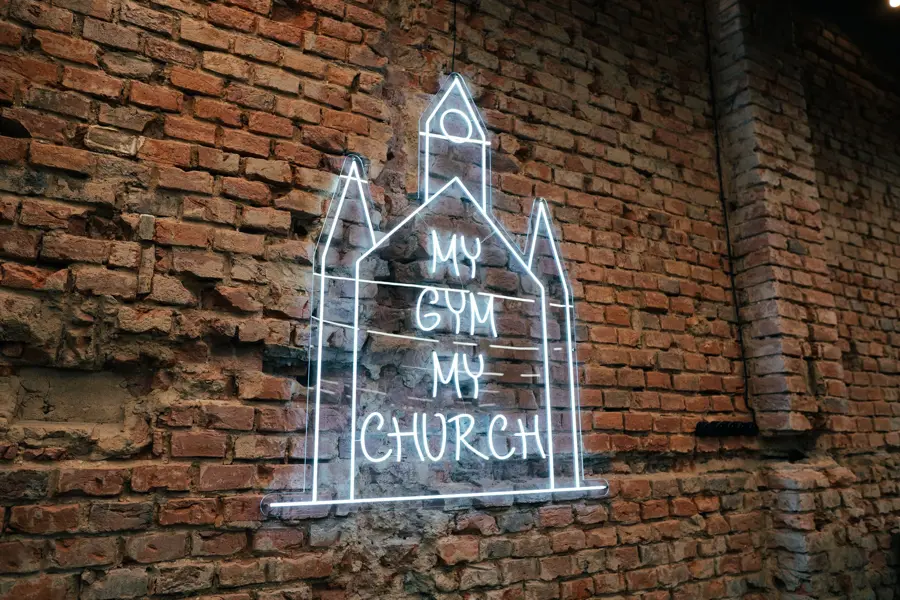 MY
GYM
MY
CHURCH